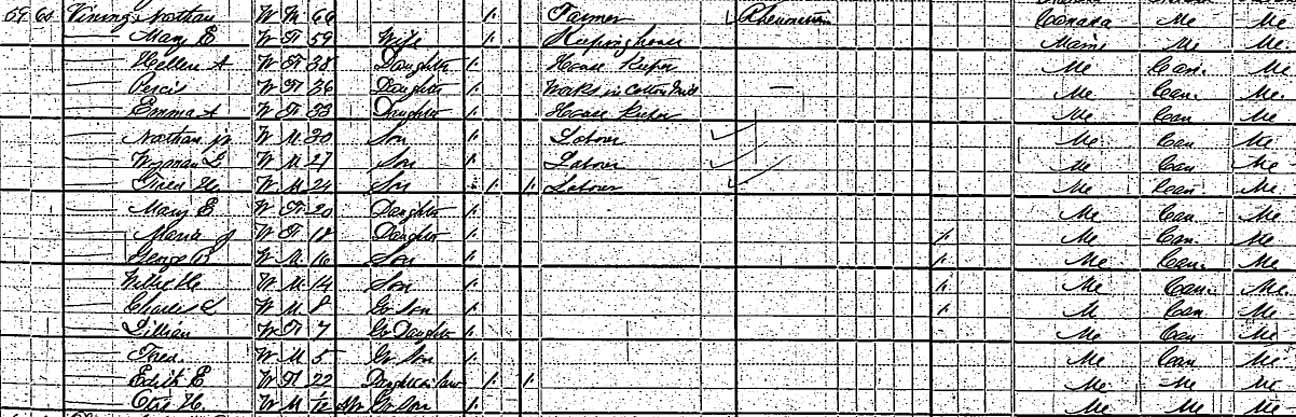 59 60 Vining, Nathan W M 66 1. Farmer Rheumatism Canada Me Me
Mary E W F 59 Wife 1. Keeping house Maine Me Me.
Hellen A W F 38 Daughter 1. House Keeper Me Can. Me
Percis W F 36 Daughter 1. Works in Cotton Mill — Me Can. Me.
Emma A W F 33 Daughter 1. House Keeper Me Can Me.
Nathan jr W M 30 Son 1. Laborer Me Can Me
W M 27 Son 1. Laborer Me Can Me
Fred H W M 24 Son 1. 1. Laborer Me Can Me
Mary E W F 20 Daughter 1. Me Can Me
Maria J W F 18 Daughter 1. 1. Me Can. Me
George B W M 16 Son 1. 1. Me Can. Me
Willie H W M 14 Son 1. 1. Me Can. Me.
Charles L W M 8 Gr Son 1. 1. M Can Me
Lillian W F 7 Gr Daughter 1. Me Can Me
Fred. W M 5 Gr Son 1. Me Can Me
Edith E W F 22 Daughter in law 1. 1. Me Me Me
W M Gr Son Me Me Me